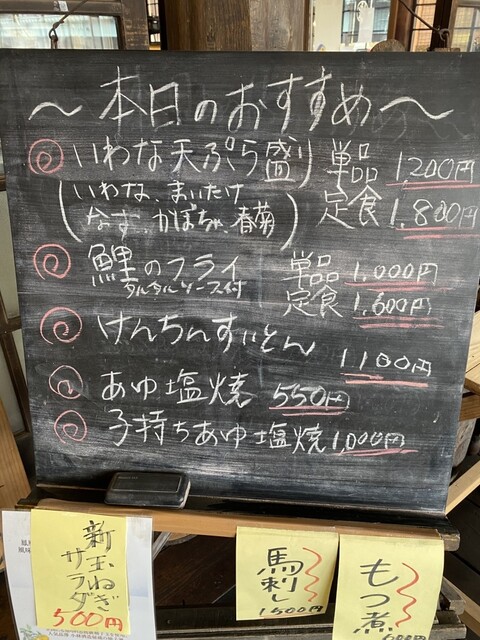 ～本日のおすすめ～
いわな天ぷら盛り 単品 1,200円
(いわな、まいたけ 定食 1,800円
なす、かぼちゃ、春菊)
鯉のフライ 単品 1,000円
タルタルソース付 定食 1,600円
けんちんすいとん 1100円
あゆ塩焼 550円
子持ちあゆ塩焼 1,000円
新玉ねぎ
サラダ
500円
馬刺し
1500円
もつ煮